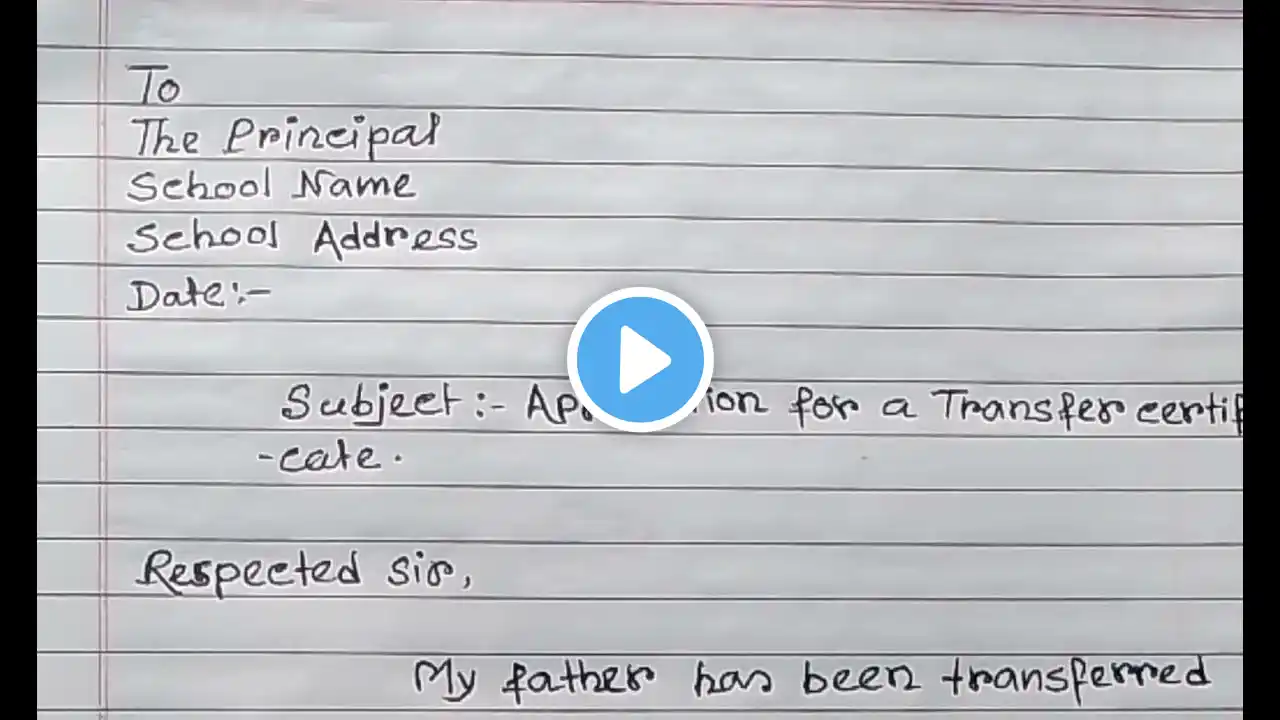 To
The Principal
School Name
School Address
Date:-
Subject:- Application for a Transfer certif
-cate.
Respected sir,
My father has been transferred